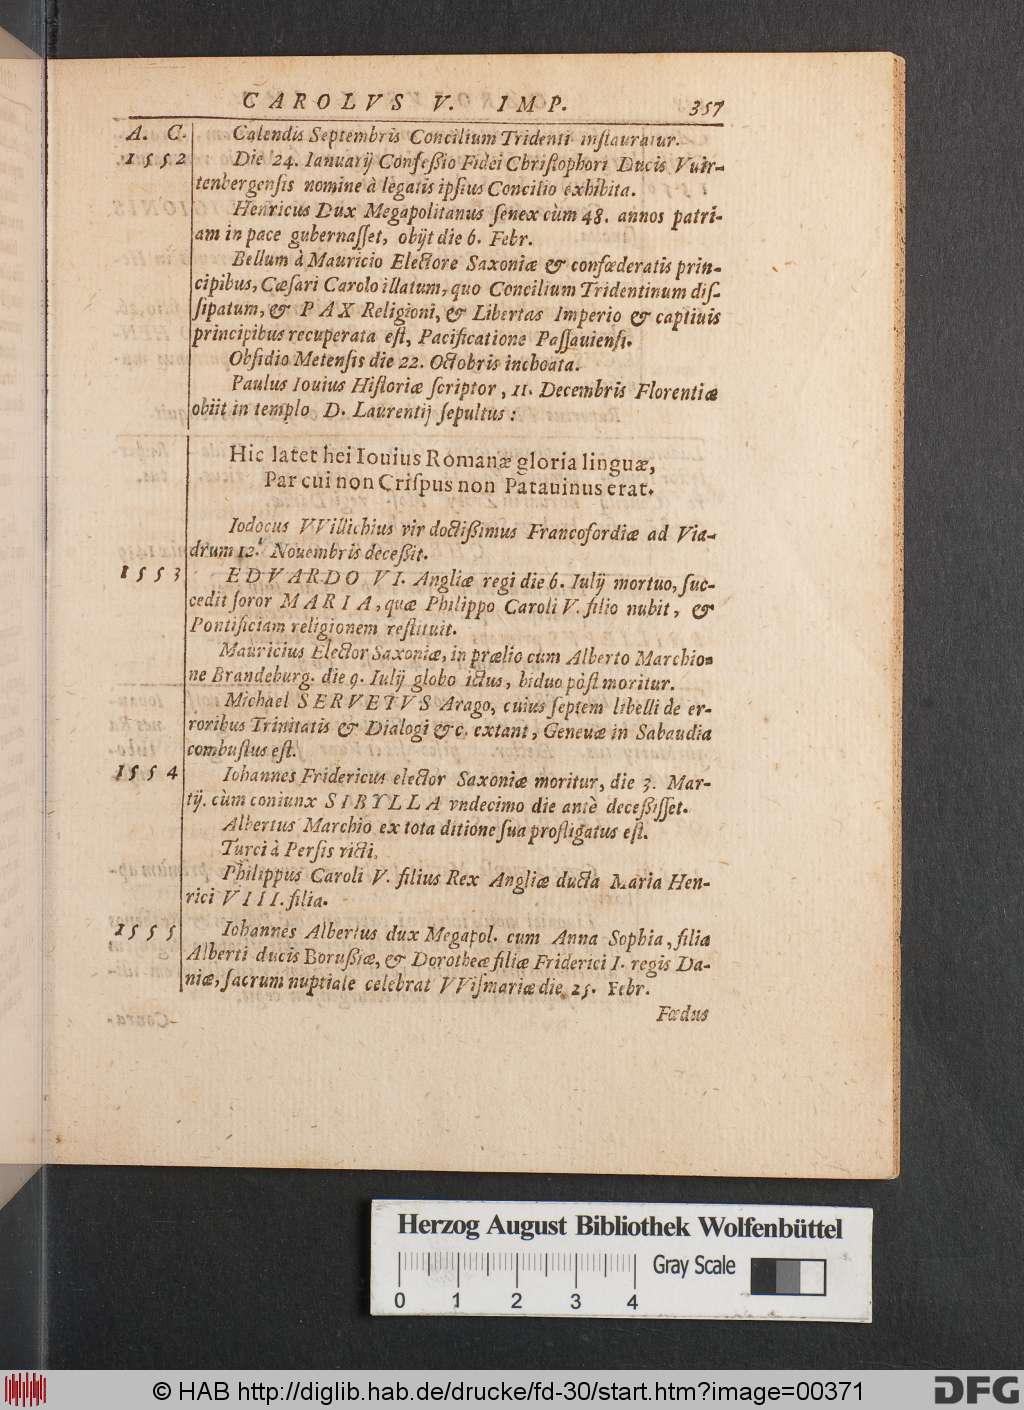 CAROLVS V. IMP. 357
A. C. Calendis Septembris Concilium Tridenti instauratur.
1552 Die 24. Ianuarij Confeßio Fidei Christophori Ducis Vuir-
tenbergensis nomine à legatis ipsius Concilio exhibita.
Henricus Dux Megapolitanus senex cùm 48. annos patri-
am in pace gubernasset, obijt die 6. Febr.
Bellum à Mauricio Electore Saxoniæ & confœderatis prin-
cipibus, Cæsari Carolo illatum, quo Concilium Tridentinum dis-
sipatum, & PAX Religioni, & Libertas Imperio & captiuis
principibus recuperata est, Pacificatione Passauiensi.
Obsidio Metensis die 22. Octobris inchoata.
Paulus Iouius Historiæ scriptor, 11. Decembris Florentiæ
obiit in templo D. Laurentij sepultus:
Hic latet hei Iouius Romanæ gloria linguæ,
Par cui non Crispus non Patauinus erat.
Iodocus VVillichius vir doctißimus Francofordiæ ad Via-
drum 12. Nouembris deceßit.
1553 EDVARDO VI. Angliæ regi die 6. Iulij mortuo, suc-
cedit soror MARIA, quæ Philippo Caroli V. filio nubit, &
Pontificiam religionem restituit.
Mauricius Elector Saxoniæ, in prælio cum Alberto Marchio-
ne Brandeburg. die 9. Iulij globo ictus, biduo pòst moritur.
Michael SERVETVS Arago, cuius septem libelli de er-
roribus Trinitatis & Dialogi &c. extant, Geneuæ in Sabaudia
combustus est.
1554 Iohannes Fridericus elector Saxoniæ moritur, die 3. Mar-
tij. cùm coniunx SIBYLLA vndecimo die antè deceßisset.
Albertus Marchio ex tota ditione sua profligatus est.
Turci à Persis victi.
Philippus Caroli V. filius Rex Angliæ ducta Maria Hen-
rici VIII. filia.
1555 Iohannes Albertus dux Megapol. cum Anna Sophia, filia
Alberti ducis Borußiæ, & Dorotheæ filiæ Friderici I. regis Da-
niæ, sacrum nuptiale celebrat VVismariæ die 25. Febr.
Fœdus
Herzog August Bibliothek Wolfenbüttel
Gray Scale
0 1 2 3 4
© HAB http://diglib.hab.de/drucke/fd-30/start.htm?image=00371
DFG